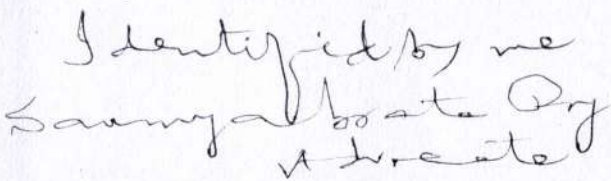 Identified by me
Saumyabrata Roy
Advocate